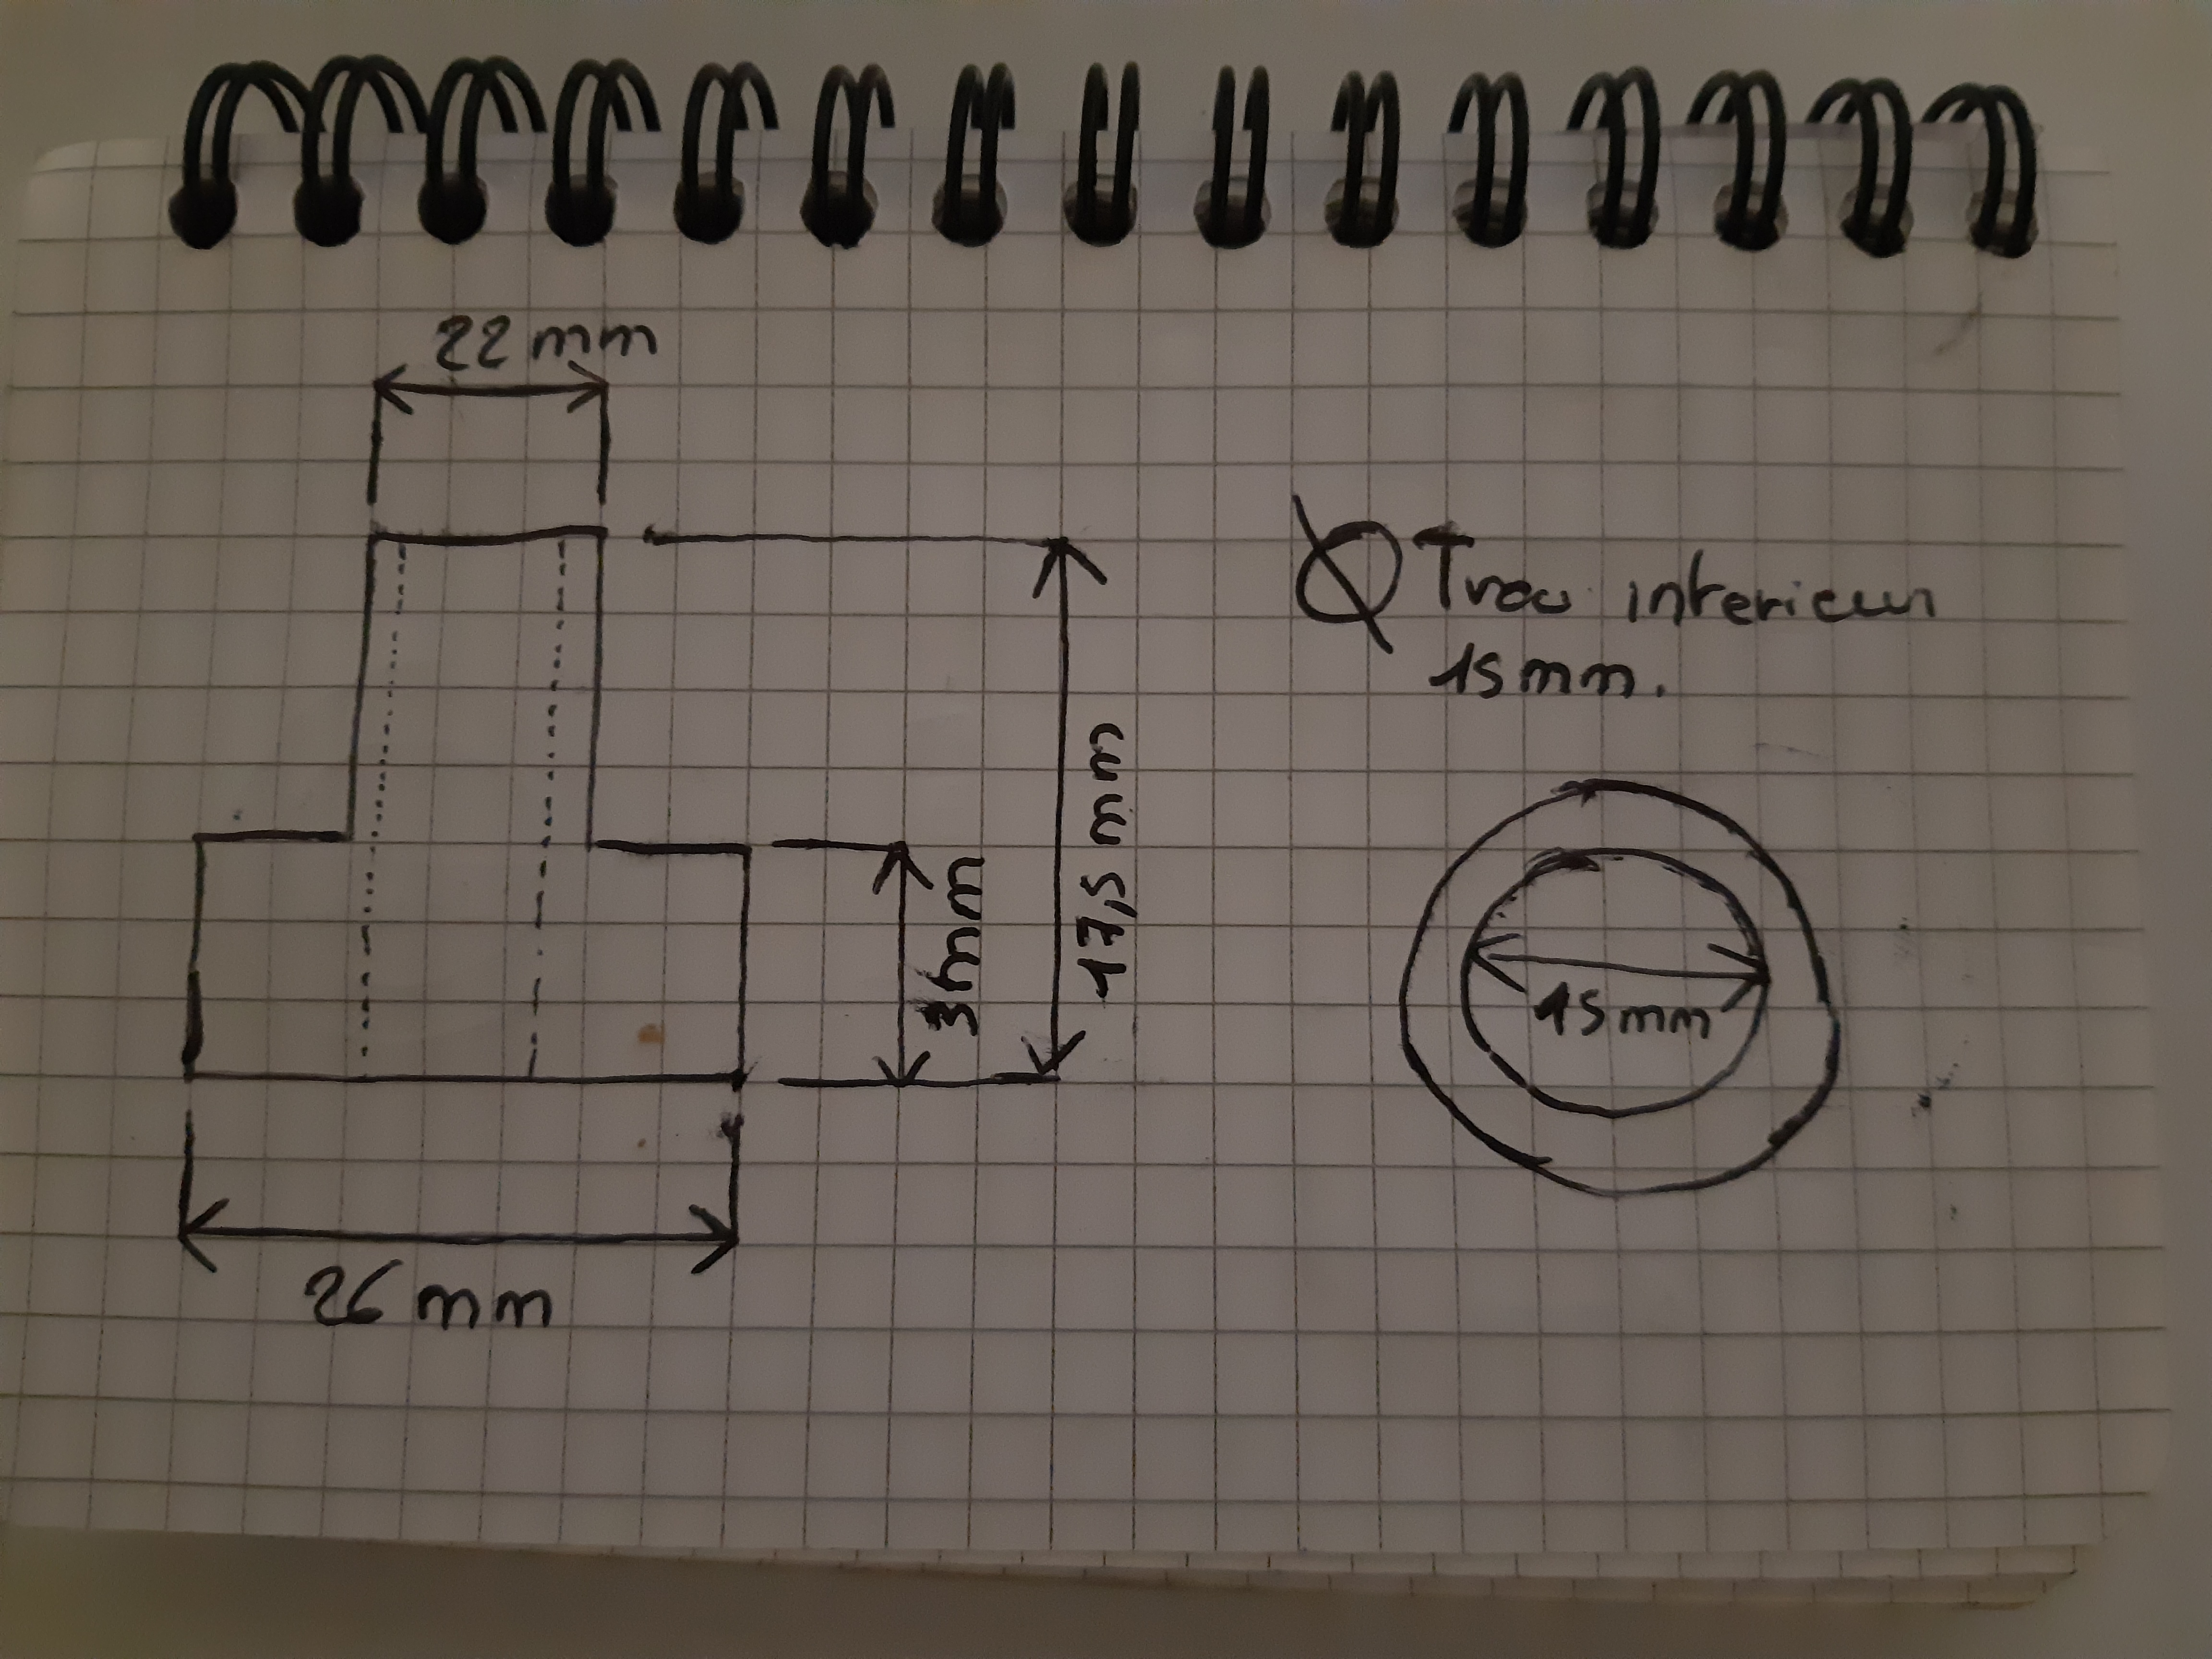 22mm
Ø Trou interieur
15mm.
17,5 mm
3mm
15mm
26 mm